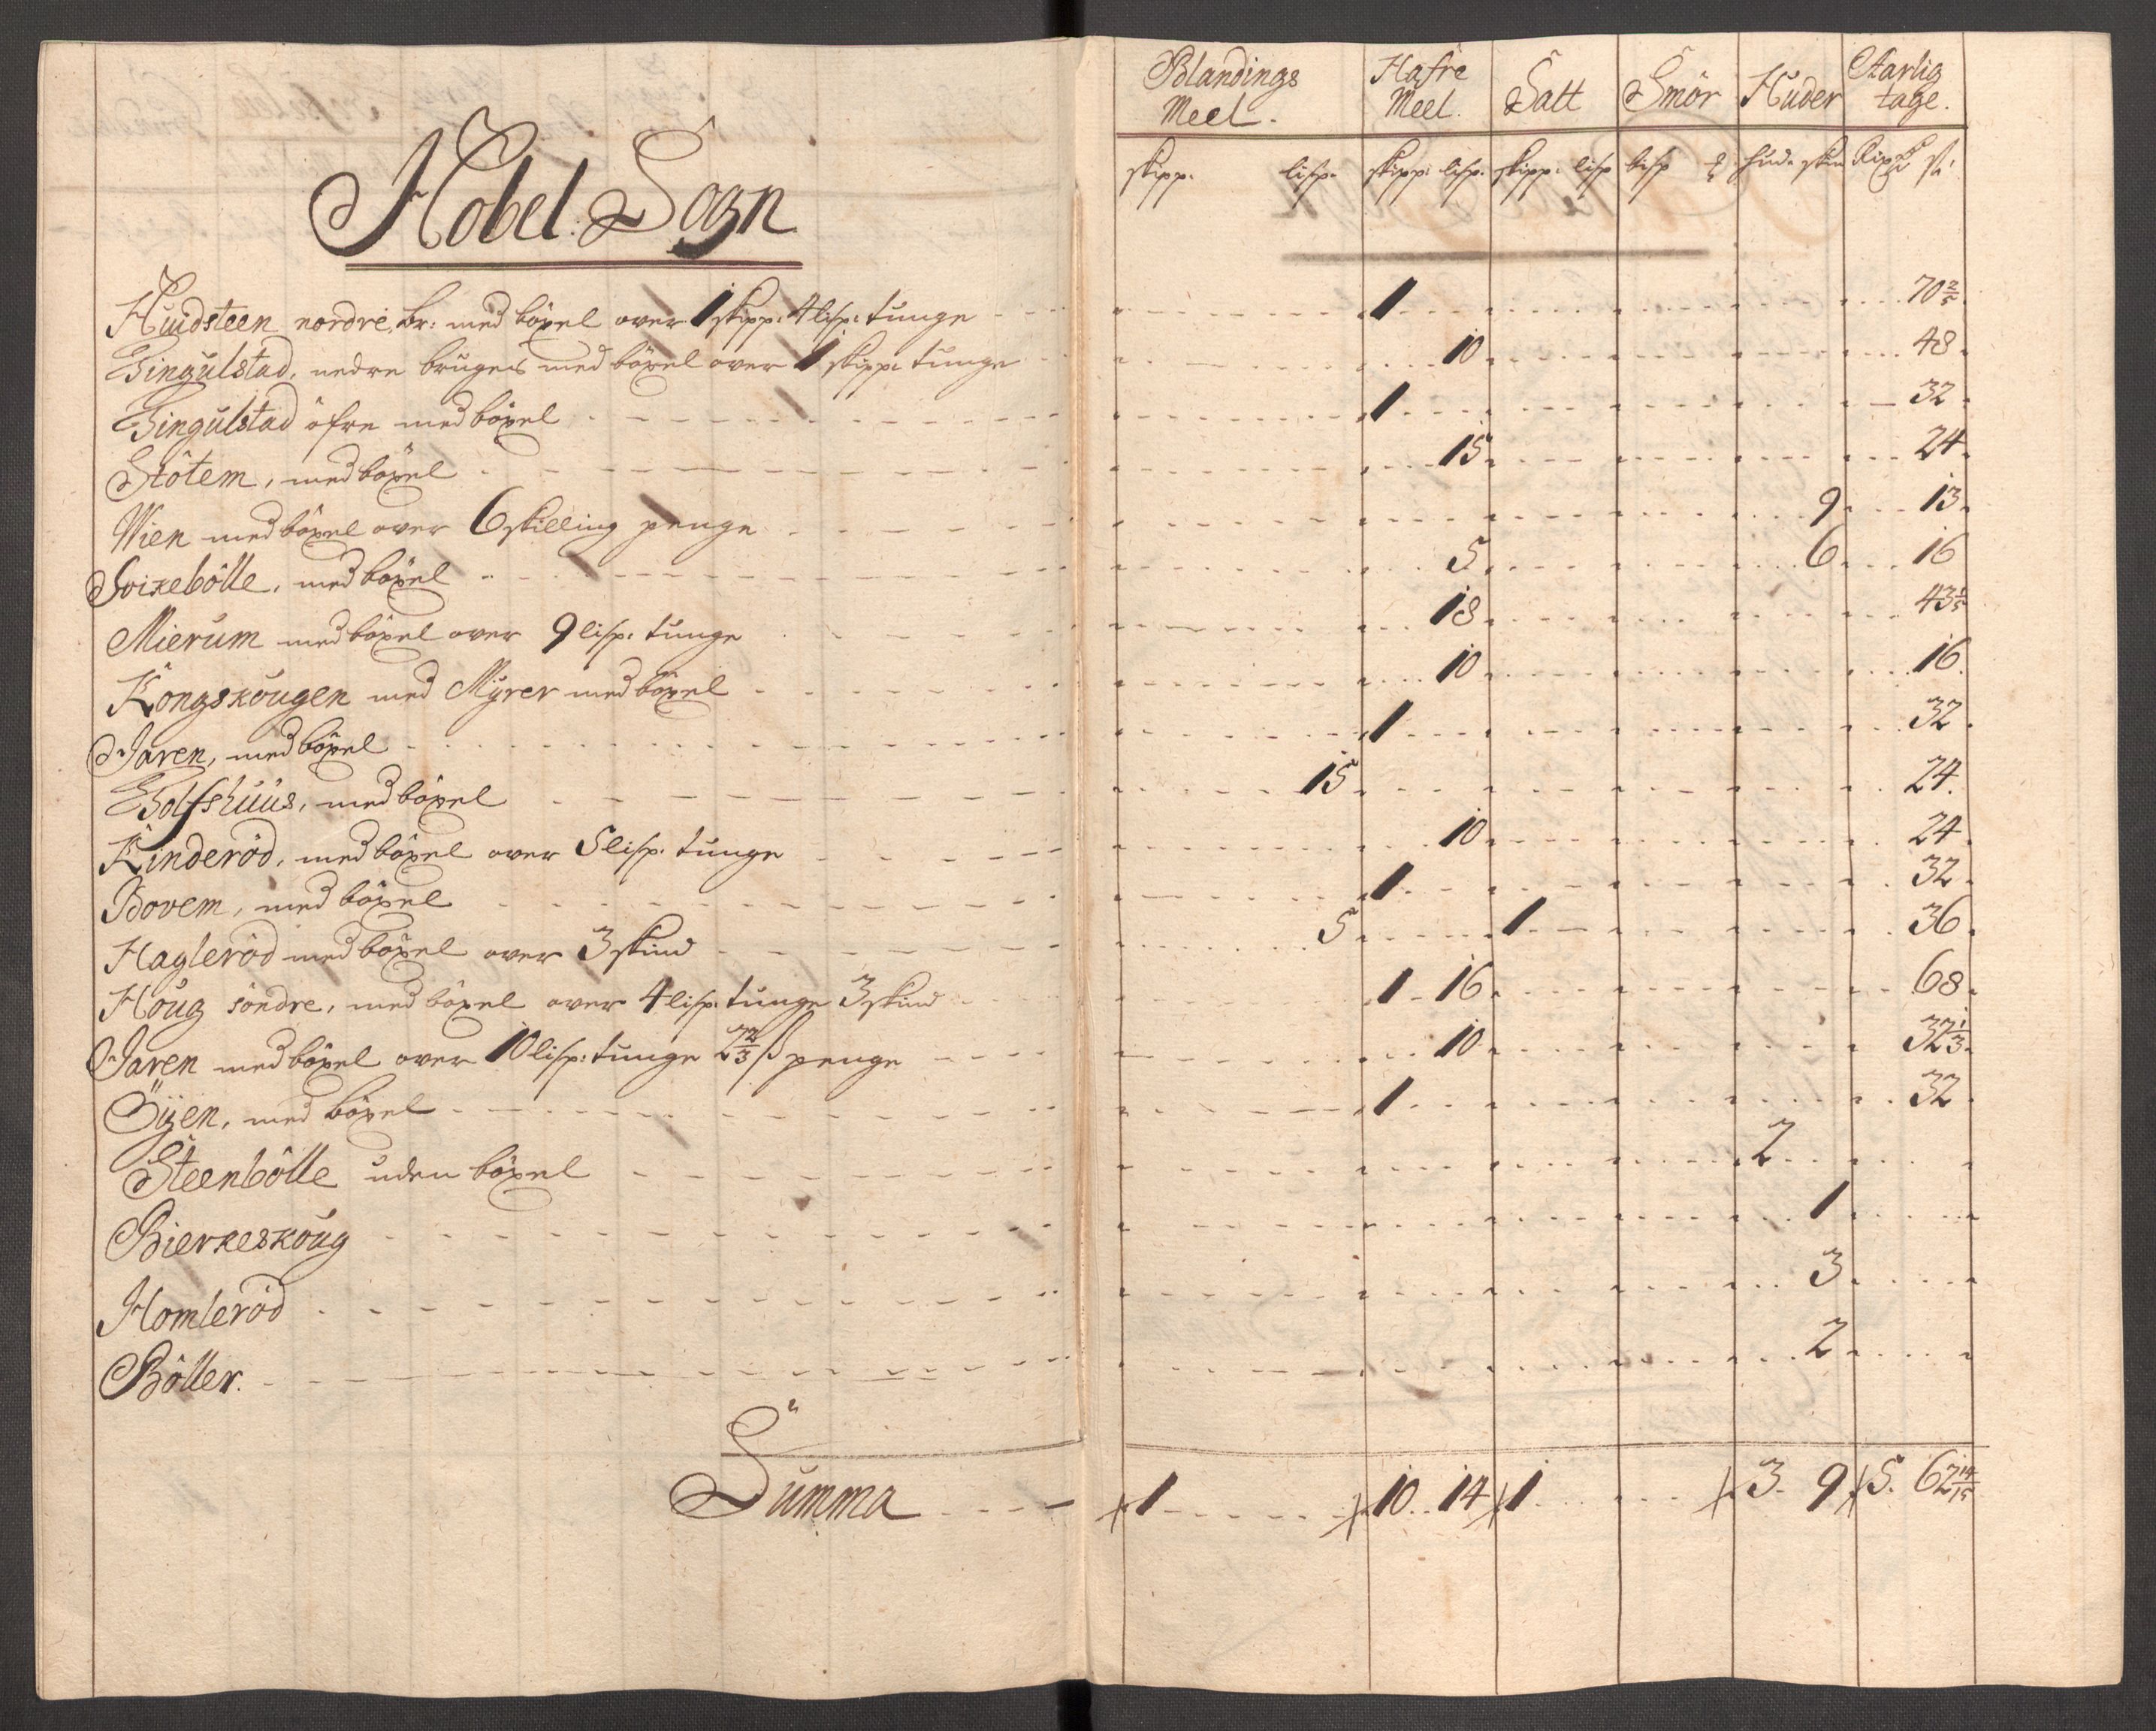 Hobel. Sogn
Blandings Meel. | Hafre Meel. | Salt | Smör | Huder | Aarlig tage.
skipp. lisp. | skipp: lisp. | skipp: lisp | lisp | hud. skin | Rixd
Huidsteen nordre, br: med böxel over 1 skipp: 4 lisp: tunge 1 70 2/5
Gingulstad, nedre bruges med böxel over 1 skipp: tunge 10 48
Gingulstad öfre med böxel 1 32
Stötem, med böxel 15 24
Wien med böxel over 6 skilling penge 9 13
Svikebölle, med böxel 5 6 16
Mierum med böxel over 9 lisp: tunge 18 43 1/5
Kongskougen med Myrer med böxel 10 16.
Jaren, med böxel 1 32
Tolfshuus, med böxel 15 24.
Kinderöd, med böxel over 5 lisp. tunge 10 24
Bovem, med böxel 1 32
Hagleröd med böxel over 3 skind 5 1 36
Houg söndre, med böxel over 4 lisp: tunge 3 skind 1 16 68
Jaren med böxel over 10 lisp: tunge 2 2/3 ß penge 10 32 1/3
Öyen, med böxel 1 32
Steenbölle uden böxel 2
Bierkeskoug 1
Homleröd 3
Böller. 2
Summa 1 10 14 1 3. 9 5. 62 14/15